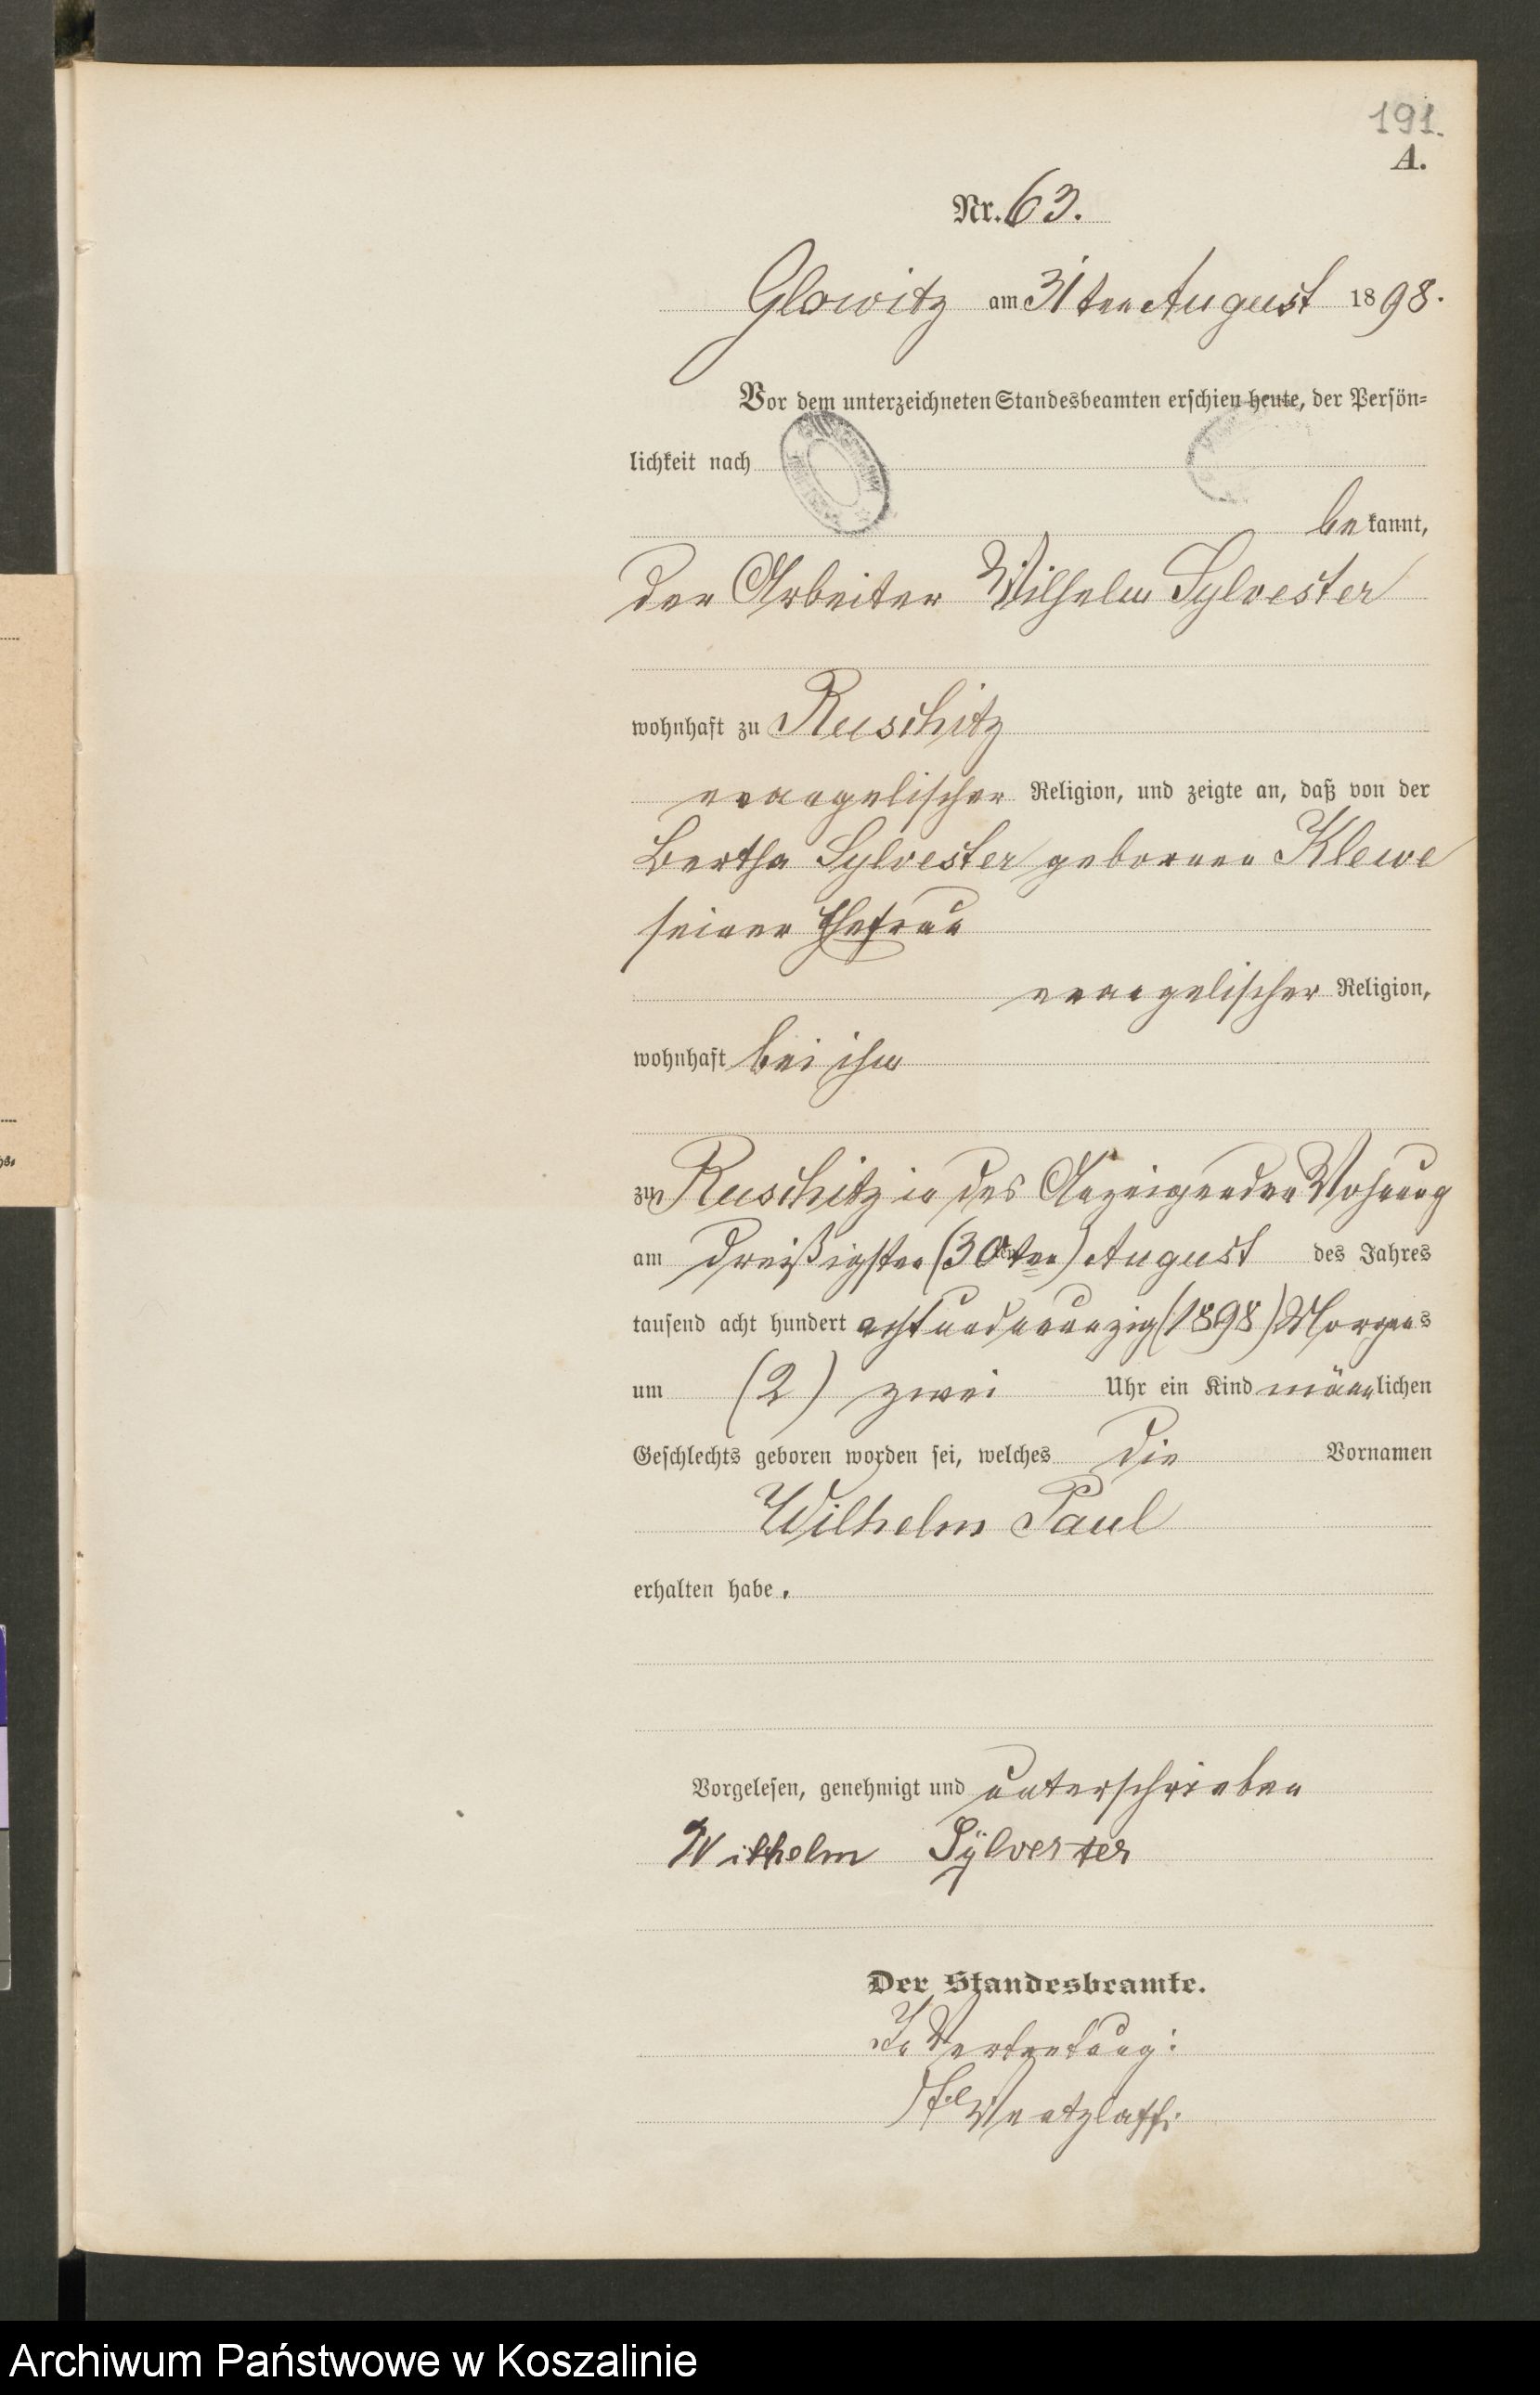 191.
A.
Nr. 63.
Glowitz am 31ten August 1898.
Vor dem unterzeichneten Standesbeamten erschien heute, der Persön-
lichkeit nach
bekannt,
der Arbeiter Wilhelm Sylvester
wohnhaft zu Ruschitz
evangelischer Religion, und zeigte an, daß von der
Bertha Sylvester geborenen Klewe
seiner Ehefrau
evangelischer Religion,
wohnhaft bei ihm
zu Ruschitz in des Anzeigenden Wohnung
am dreißigsten (30ten) August des Jahres
tausend acht hundert achtundneunzig (1898) Morgens
um (2) zwei Uhr ein Kind männlichen
Geschlechts geboren worden sei, welches die Vornamen
Wilhelm Paul
erhalten habe.
Vorgelesen, genehmigt und unterschrieben
Wilhelm Sÿlvester
Der Standesbeamte.
In Vertretung:
Archiwum Państwowe w Koszalinie